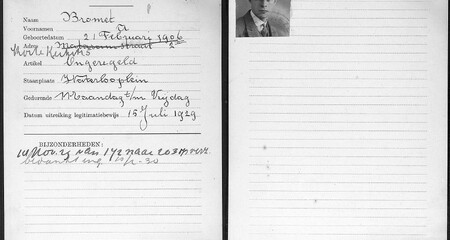 Naam Bromet
Voornamen
Geboortedatum 21 Februari 1906
Adres straat
Artikel Ongeregeld
Staanplaats Waterlooplein
Gedurende Maandag t/m Vrydag
Datum uitreiking legitimatiebewijs 15 Juli 1929
BIJZONDERHEDEN:
14 Nov. 29 van 172 naar 203